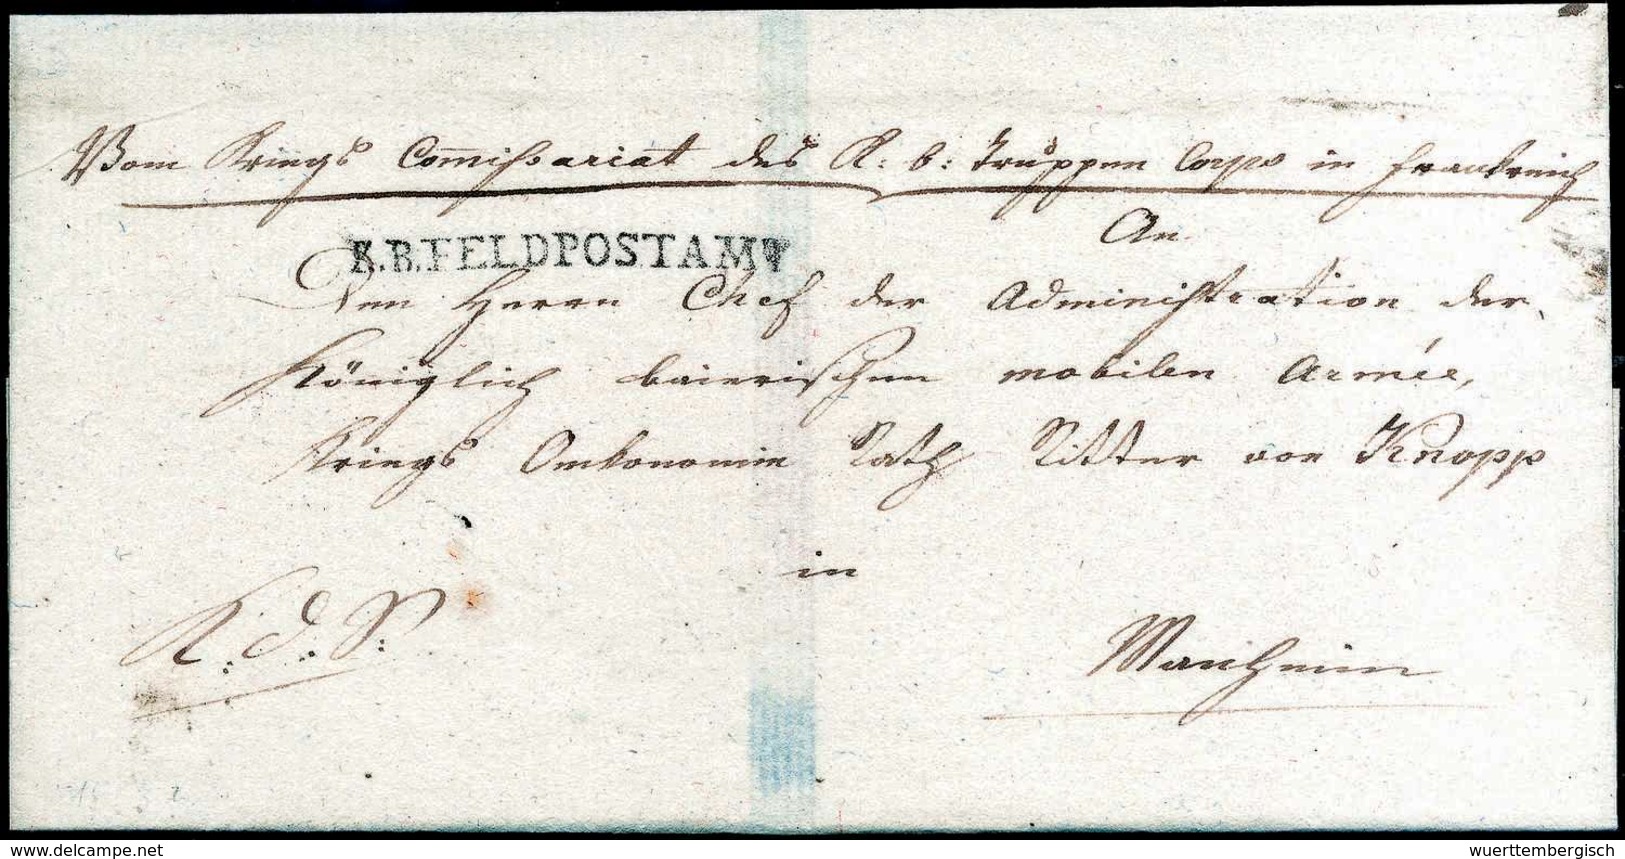 Vom Kriegs Commissariat des K: b: Truppen Corps in Frankreich
An
K.B.FELDPOSTAMT
Den Herrn Chef der Administration der
Königlich baierischen mobilen Armée,
Kriegs Oekonomie Rath Ritter von Knopp
in
K: d: S:
Manheim
www.delcampe.net
wuerttembergisch